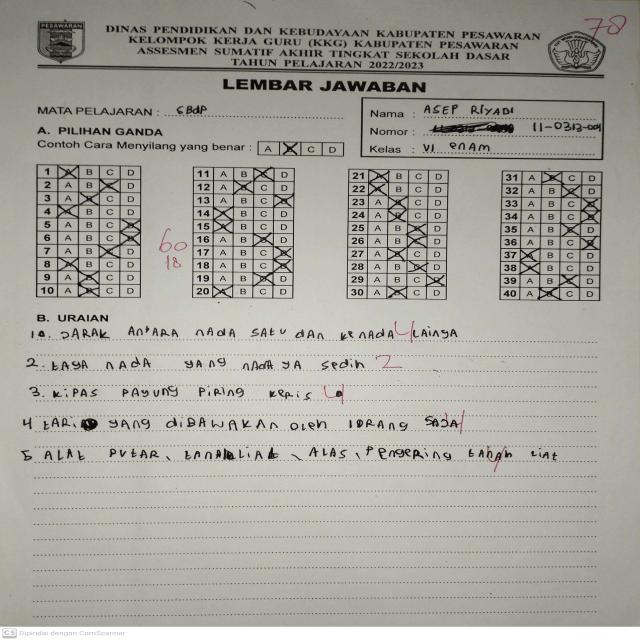 PESAWARAN
DINAS PENDIDIKAN DAN KEBUDAYAAN KABUPATEN PESAWARAN
KELOMPOK KERJA GURU (KKG) KABUPATEN PESAWARAN
ASSESMEN SUMATIF AKHIR TINGKAT SEKOLAH DASAR
TAHUN PELAJARAN 2022/2023
78
LEMBAR JAWABAN
MATA PELAJARAN : SBdP
Nama : ASEP RIYADI
Nomor : 11-0313-004
Kelas : VI enAM
A. PILIHAN GANDA
Contoh Cara Menyilang yang benar : A B C D
1 A B C D
2 A B C D
3 A B C D
4 A B C D
5 A B C D
6 A B C D
7 A B C D
8 A B C D
9 A B C D
10 A B C D
60
18
11 A B C D
12 A B C D
13 A B C D
14 A B C D
15 A B C D
16 A B C D
17 A B C D
18 A B C D
19 A B C D
20 A B C D
21 A B C D
22 A B C D
23 A B C D
24 A B C D
25 A B C D
26 A B C D
27 A B C D
28 A B C D
29 A B C D
30 A B C D
31 A B C D
32 A B C D
33 A B C D
34 A B C D
35 A B C D
36 A B C D
37 A B C D
38 A B C D
39 A B C D
40 A B C D
B. URAIAN
1. JARAK AntARA nADA SAtU dAn KenADA 4 LAinyA
2. tAGA nADA yAnG nADA YA sedih 2
3. KiPAS PAyUnG PiRinG KeRiS 4
4 tARi yAnG diBAWAKAn oLeh 1ORAnG SAJA
5 ALAt PUtAR, tAnAhLiAt, ALAS, Pengering tAnAh LiAt
CS Dipindai dengan CamScanner